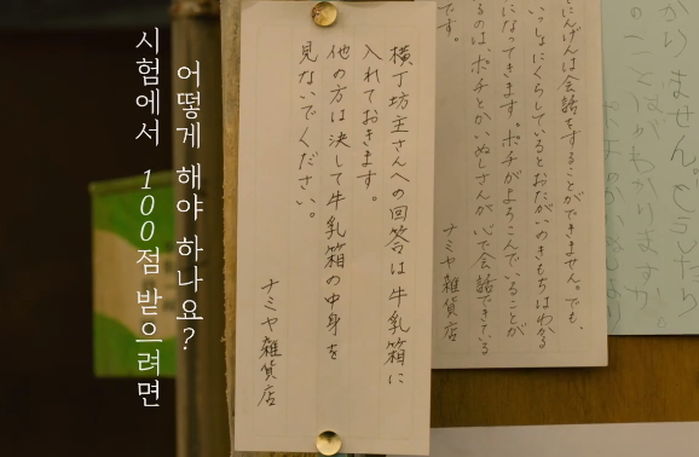 시험에서 100점 받으려면
어떻게 해야 하나요?
横丁坊主さんへの回答は牛乳箱に
入れておきます。
他の方は決して牛乳箱の中身を
見ないでください。
ナミヤ雑貨店
とにんげんは会話をすることができません。でも、
いっしょにくらしているとおたがいのきもちはわかる
になってきます。ポチがよろこんでいることが
るのは、ポチとかいぬしさんが心で会話できている
です。
ナミヤ雑貨店
かりません。どうしたら
のことばがわかりますか。
ポチのかいぬしより